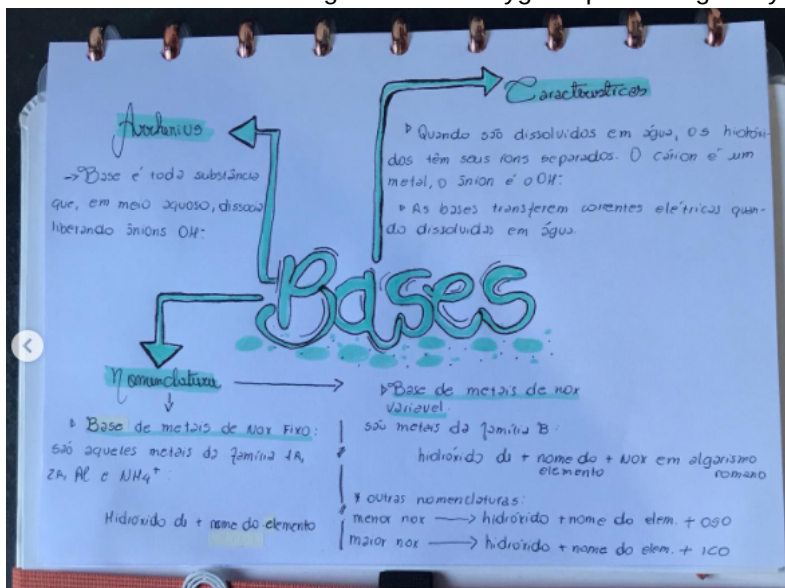 Bases
Arrhenius
→ Base é toda substância
que, em meio aquoso, dissocia
liberando ânions OH-.
Características
▹ Quando são dissolvidos em água, os hidróxi-
dos têm seus íons separados. O cátion é um
metal, o ânion é o OH-.
▹ As bases transferem correntes elétricas quan-
do dissolvidas em água.
Nomenclatura
▹ Base de metais de Nox Fixo:
são aqueles metais da família 1A,
2A, Al e NH4+:
Hidróxido de + nome do elemento
▹ Base de metais de nox
variavel.
são metais da família B:
hidróxido de + nome do + NOX em algarismo
elemento romano
* outras nomenclaturas:
menor nox → hidróxido + nome do elem. + OSO
maior nox → hidróxido + nome do elem. + ICO